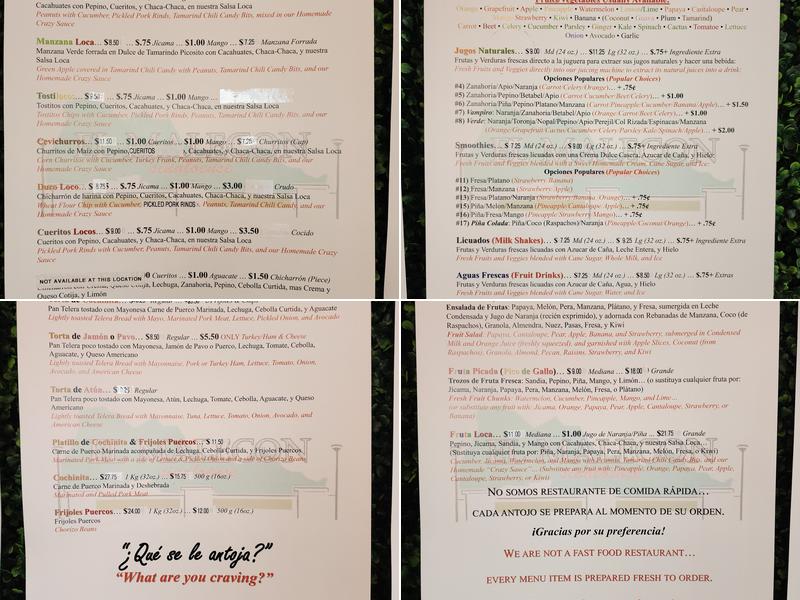 Cacahuates con Pepino, Cueritos, y Chaca-Chaca, en nuestra Salsa Loca
Peanuts with Cucumber, Pickled Pork Rinds, Tamarind Chili Candy Bits, mixed in our Homemade
Crazy Sauce
Manzana Loca... $8.50 ... $.75 Jicama ... $1.00 Mango ... $7.25 Manzana Forrada
Manzana Verde forrada en Dulce de Tamarindo Picosito con Cacahuates, Chaca-Chaca, y nuestra
Salsa Loca
Green Apple covered in Tamarind Chili Candy with Peanuts, Tamarind Chili Candy Bits, and our
Homemade Crazy Sauce
... $.75 Jicama ... $1.00 Mango
Tostitos con Pepino, Cueritos, Cacahuates, y Chaca-Chaca, en nuestra Salsa Loca
Tostitos Chips with Cucumber, Pickled Pork Rinds, Peanuts, Tamarind Chili Candy Bits, and our
Homemade Crazy Sauce
Cevichurros... $11.50 ... $1.00 Cueritos ... $1.00 Mango ... $7.25 Churritos (Cup)
Churritos de Maíz con Pepino, CUERITOS , Cacahuates, y Chaca-Chaca, en nuestra Salsa Loca
Corn Churritos with Cucumber, Turkey Frank, Peanuts, Tamarind Chili Candy Bits, and our
Homemade Crazy Sauce
Duro Loco... ... $.75 Jicama ... $1.00 Mango ... $3.00 Crudo
Chicharrón de harina con Pepino, Cueritos, Cacahuates, Chaca-Chaca, y nuestra Salsa Loca
Wheat Flour Chip with Cucumber, PICKLED PORK RINDS Peanuts, Tamarind Chili Candy, and our
Homemade Crazy Sauce
Cueritos Locos... $9.00 ... $.75 Jicama ... $1.00 Mango ... $3.50 Cocido
Cueritos con Pepino, Cacahuates, y Chaca-Chaca, en nuestra Salsa Loca
Pickled Pork Rinds with Cucumber, Peanuts, Tamarind Chili Candy Bits, and our Homemade Crazy
Sauce
NOT AVAILABLE AT THIS LOCATION Cueritos ... $1.00 Aguacate ... $1.50 Chicharrón (Piece)
Lechuga, Zanahoria, Pepino, Cebolla Curtida, mas Crema y
Queso Cotija, y Limón
Fruits/Vegetables Usually Available:
Orange • Grapefruit • Apple • Pineapple • Watermelon • Lemon/Lime • Papaya • Cantaloupe • Pear •
Mango Strawberry • Kiwi • Banana • (Coconut • Guava • Plum • Tamarind)
Carrot • Beet • Celery • Cucumber • Parsley • Ginger • Kale • Spinach • Cactus • Tomato • Lettuce
Onion • Avocado • Garlic
Jugos Naturales... $9.00 Md (24 oz.) ... $11.25 Lg (32 oz.) ... $.75+ Ingrediente Extra
Frutas y Verduras frescas directo a la juguera para extraer sus jugos naturales y hacer una bebida:
Fresh Fruits and Veggies directly into our juicing machine to extract its natural juices into a drink:
Opciones Populares (Popular Choices)
#4) Zanahoria/Apio/Naranja (Carrot/Celery/Orange)... + .75¢
#5) Zanahoria/Pepino/Betabel/Apio (Carrot/Cucumber/Beet/Celery)... + $1.00
#6) Zanahoria/Piña/Pepino/Platano/Manzana (Carrot/Pineapple/Cucumber/Banana/Apple)... + $1.50
#7) Vampiro: Naranja/Zanahoria/Betabel/Apio (Orange/Carrot/Beet/Celery)... + $1.00
#8) Verde: Naranja/Toronja/Nopal/Pepino/Apio/Perejil/Col Rizada/Espinacas/Manzana
(Orange/Grapefruit/Cactus/Cucumber/Celery/Parsley/Kale/Spinach/Apple)... + $2.00
Smoothies... $7.25 Md (24 oz.) ... $9.00 Lg (32 oz.) ... $.75+ Ingrediente Extra
Frutas y Verduras frescas licuadas con una Crema Dulce Casera, Azucar de Caña, y Hielo:
Fresh Fruits and Veggies blended with a Sweet Homemade Cream, Cane Sugar, and Ice:
Opciones Populares (Popular Choices)
#11) Fresa/Platano (Strawberry/Banana)
#12) Fresa/Manzana (Strawberry/Apple)
#13) Fresa/Platano/Naranja (Strawberry/Banana/Orange)... + .75¢
#15) Piña/Melon/Manzana (Pineapple/Cantaloupe/Apple)... + .75¢
#16) Piña/Fresa/Mango (Pineapple/Strawberry/Mango)... + .75¢
#17) Piña Colada: Piña/Coco (Raspachos)/Naranja (Pineapple/Coconut/Orange)... + .75¢
Licuados (Milk Shakes)... $7.25 Md (24 oz.) ... $9.25 Lg (32 oz.) ... $.75+ Ingrediente Extra
Frutas y Verduras frescas licuadas con Azucar de Caña, Leche Entera, y Hielo
Fresh Fruits and Veggies blended with Cane Sugar, Whole Milk, and Ice
Aguas Frescas (Fruit Drinks)... $7.25 Md (24 oz.) ... $8.50 Lg (32 oz.) ... $.75+ Extras
Frutas y Verduras frescas licuadas con Azucar de Caña, Agua, y Hielo
Fresh Fruits and Veggies blended with Cane Sugar, Water, and Ice
Pan Telera tostado con Mayonesa Carne de Puerco Marinada, Lechuga, Cebolla Curtida, y Aguacate
Lightly toasted Telera Bread with Mayo, Marinated Pork Meat, Lettuce, Pickled Onion, and Avocado
Torta de Jamón o Pavo... $8.50 Regular ... $5.50 ONLY Turkey/Ham & Cheese
Pan Telera poco tostado con Mayonesa, Jamón de Pavo o Puerco, Lechuga, Tomate, Cebolla,
Aguacate, y Queso Americano
Lightly toasted Telera Bread with Mayonnaise, Pork or Turkey Ham, Lettuce, Tomato, Onion,
Avocado, and American Cheese
Torta de Atún... $9.25 Regular
Pan Telera poco tostado con Mayonesa, Atún, Lechuga, Tomate, Cebolla, Aguacate, y Queso
Americano
Lightly toasted Telera Bread with Mayonnaise, Tuna, Lettuce, Tomato, Onion, Avocado, and
American Cheese
Platillo de Cochinita & Frijoles Puercos... $11.50
Carne de Puerco Marinada acompañada de Lechuga, Cebolla Curtida, y Frijoles Puercos
Marinated Pork Meat with a side of Lettuce, Pickled Onion and a side of Chorizo Beans
Cochinita... $27.75 1 Kg (32oz.) ... $15.75 500 g (16oz.)
Carne de Puerco Marinada y Deshebrada
Marinated and Pulled Pork Meat
Frijoles Puercos... $24.00 1 Kg (32oz.) ... $12.00 500 g (16oz.)
Frijoles Puercos
Chorizo Beans
"¿Qué se le antoja?"
"What are you craving?"
Ensalada de Frutas: Papaya, Melón, Pera, Manzana, Plátano, y Fresa, sumergida en Leche
Condensada y Jugo de Naranja (recién exprimido), y adornada con Rebanadas de Manzana, Coco (de
Raspachos), Granola, Almendra, Nuez, Pasas, Fresa, y Kiwi
Fruit Salad: Papaya, Cantaloupe, Pear, Apple, Banana, and Strawberry, submerged in Condensed
Milk and Orange Juice (freshly squeezed), and garnished with Apple Slices, Coconut (from
Raspachos), Granola, Almond, Pecan, Raisins, Strawberry, and Kiwi
Fruta Picada (Pico de Gallo)... $9.00 Mediana ... $18.00 Grande
Trozos de Fruta Fresca: Sandia, Pepino, Piña, Mango, y Limón... (o sustituya cualquier fruta por:
Jicama, Naranja, Papaya, Pera, Manzana, Melón, Fresa, o Plátano)
Fresh Fruit Chunks: Watermelon, Cucumber, Pineapple, Mango, and Lime...
(or substitute any fruit with: Jicama, Orange, Papaya, Pear, Apple, Cantaloupe, Strawberry, or
Banana)
Fruta Loca... $11.00 Mediana ... $1.00 Jugo de Naranja/Piña ... $21.75 Grande
Pepino, Jicama, Sandia, y Mango con Cacahuates, Chaca-Chaca, y nuestra Salsa Loca...
(Sustituya cualquier fruta por: Piña, Naranja, Papaya, Pera, Manzana, Melón, Fresa, o Kiwi)
Cucumber, Jicama, Watermelon, and Mango with Peanuts, Tamarind Chili Candy Bits, and our
Homemade "Crazy Sauce"... (Substitute any fruit with: Pineapple, Orange, Papaya, Pear, Apple,
Cantaloupe, Strawberry, or Kiwi)
NO SOMOS RESTAURANTE DE COMIDA RÁPIDA...
CADA ANTOJO SE PREPARA AL MOMENTO DE SU ORDEN.
¡Gracias por su preferencia!
WE ARE NOT A FAST FOOD RESTAURANT...
EVERY MENU ITEM IS PREPARED FRESH TO ORDER.